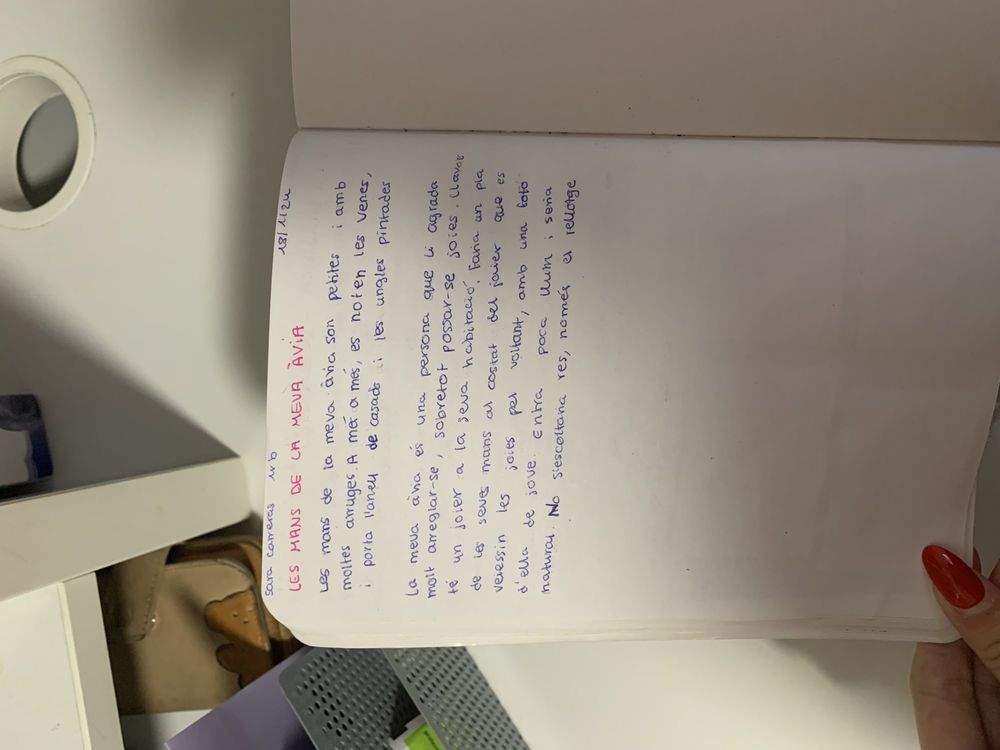 sara carreras 1rb 18/1/24
LES MANS DE LA MEVA ÀVIA
Les mans de la meva àvia son petites i amb
moltes arruges. A més a més, es noten les venes,
i porta l'anell de casada i les ungles pintades
La meva àvia és una persona que li agrada
molt arreglar-se, sobretot possar-se joies. Llavors
té un joier a la seva habitació. Faria un pla
de les seves mans al costat del joier que es
veiessin les joies pel voltant, amb una foto
d'ella de jove. Entra poca llum i seria
natural. No s'escoltaria res, només el rellotge